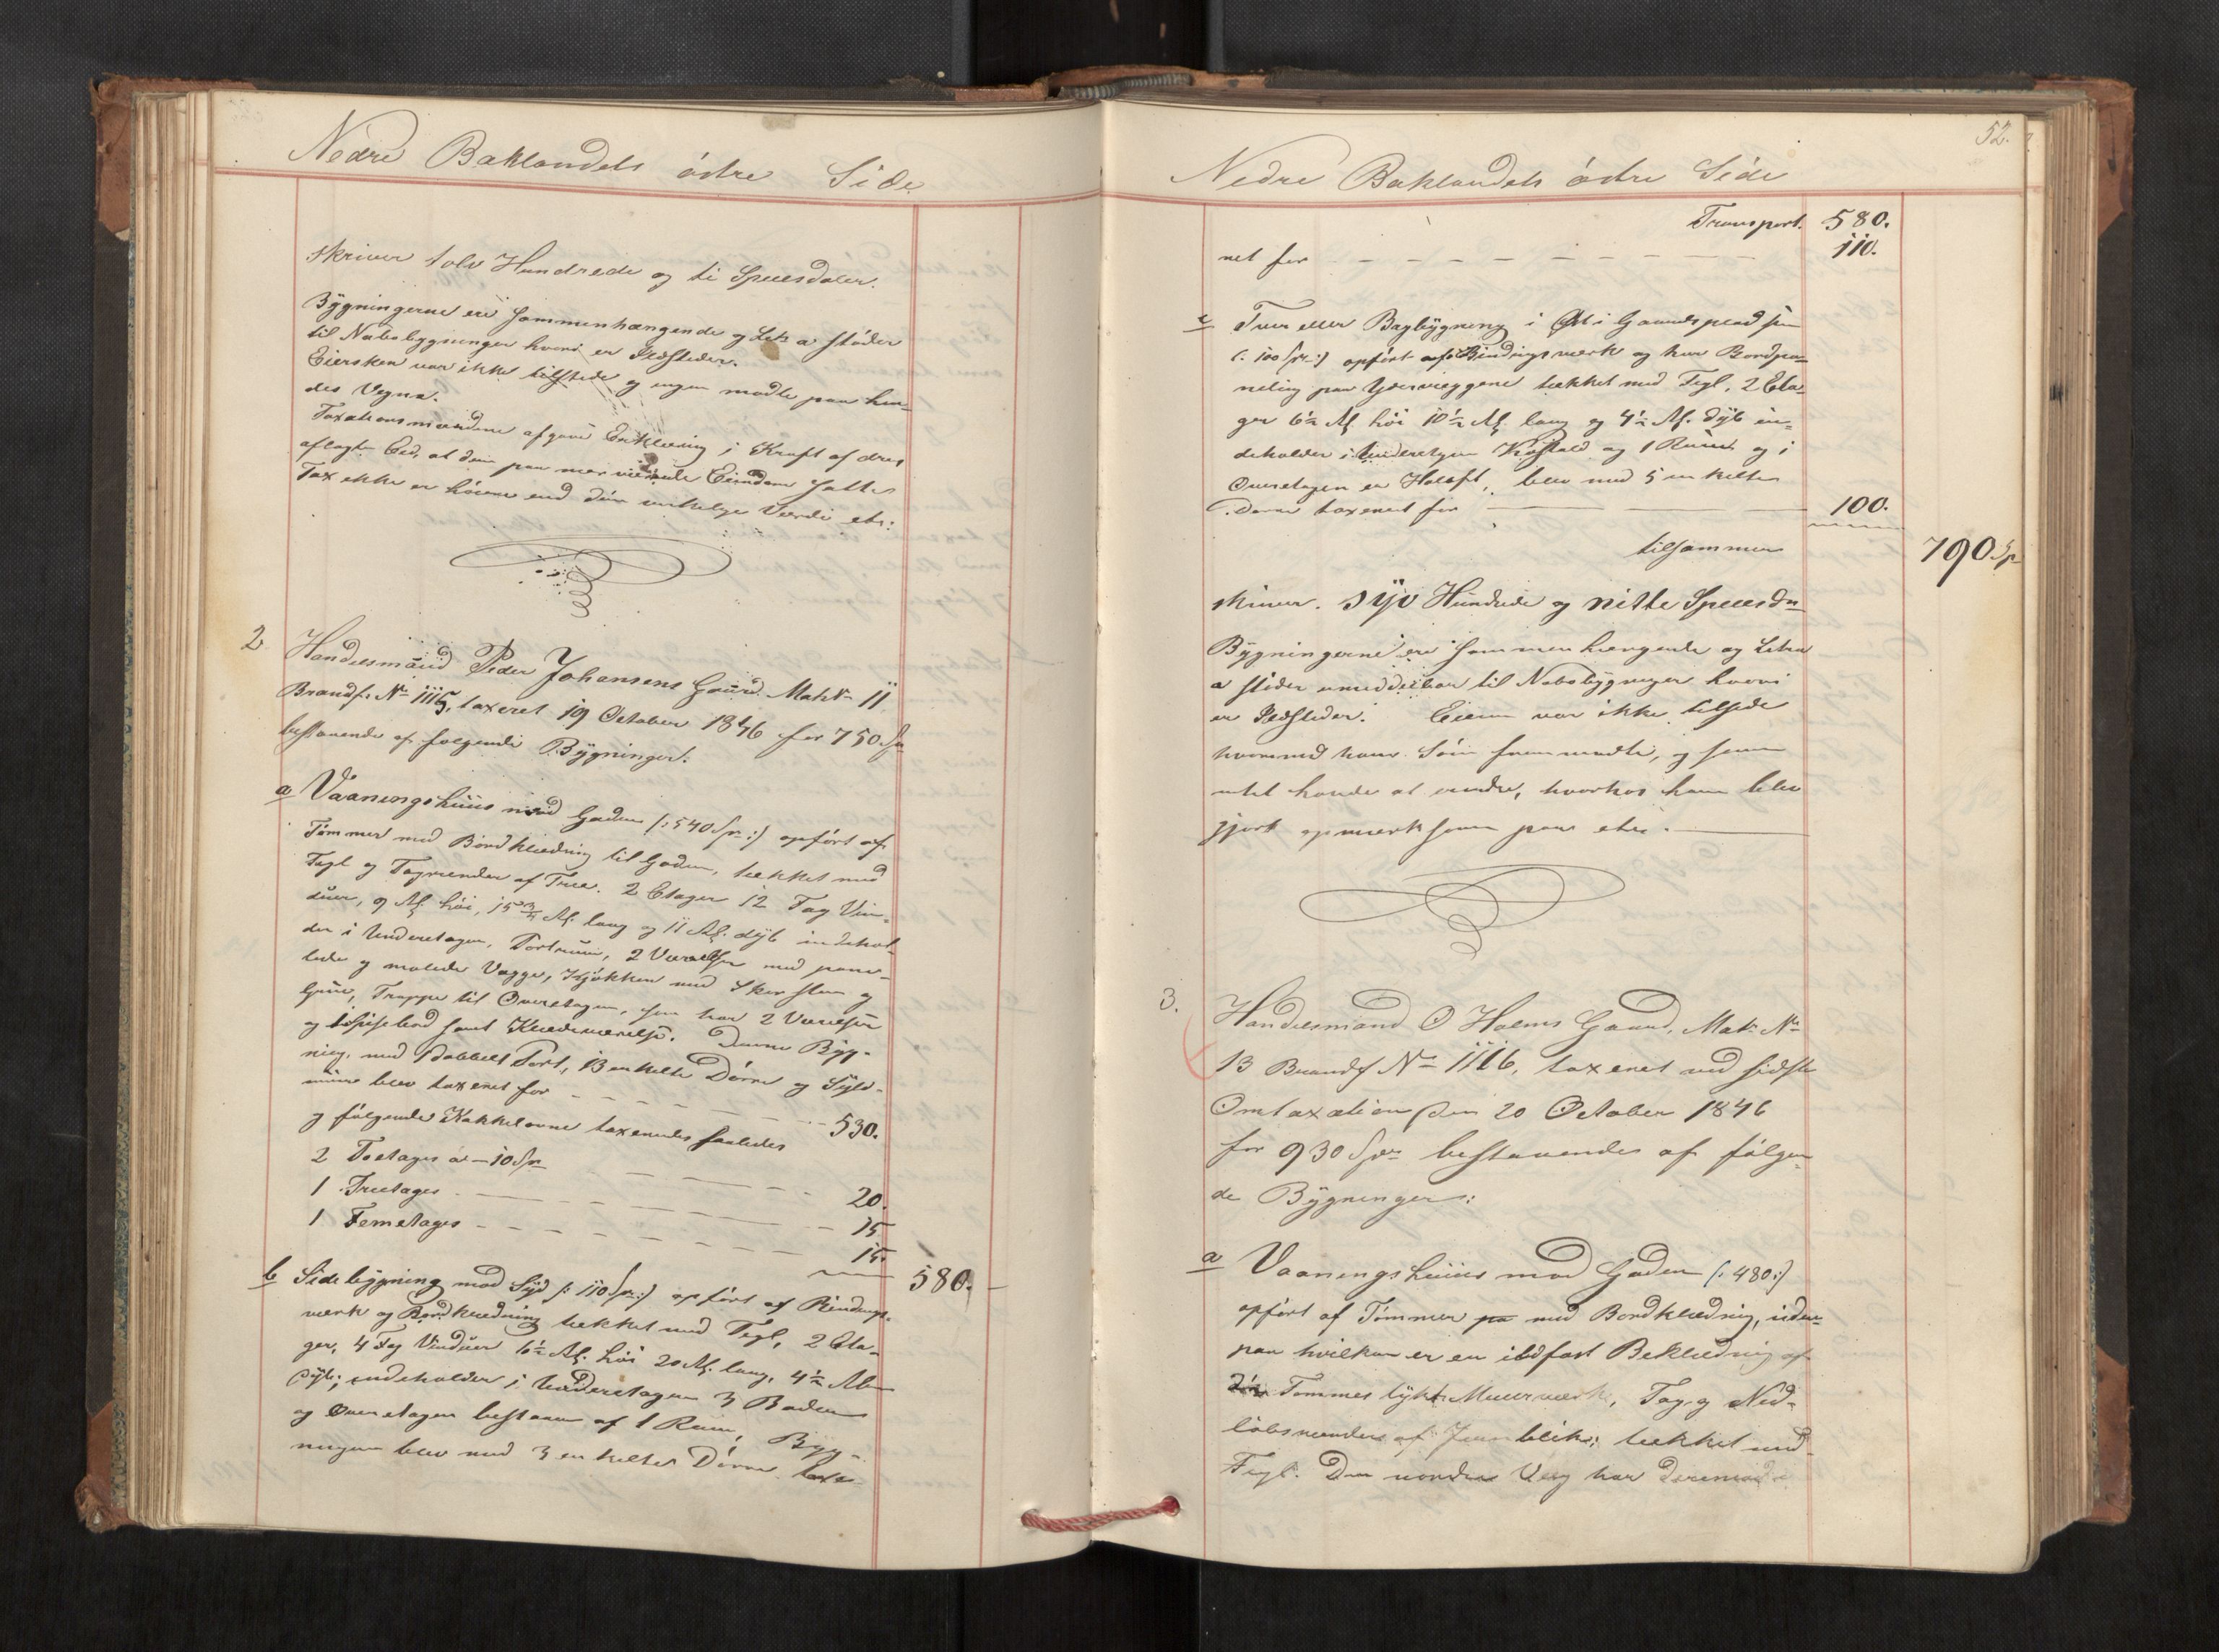 Nedre Baklandets östre Side
skriver tolv Hundrede og ti Speciesdaler.
Bÿgningerne ere sammenhængende og Litr a stöder
til Nabobygninger hvori er Ildsteder.
Eiersken var ikke tilstede og ingen mödte paa hen-
des Vegne.
Taxationsmændene afgave Erklæring i Kraft af deres
aflagte Eed, at den paa nærværende Eiendom satte
Tax ikke er höiere end dens virkelige Værdi etc:
2 Handelsmand Peder Johansens Gaard. Matr № 11
Brandfs. № 1115, taxeret 19 October 1846 for 750 Sp
bestaaende af fölgende Bÿgninger:
a Vaaningshuus mod Gaden (: 540 Sp :) opfört af
Tömmer med Bordklædning til Gaden, tækket med
Tegl og Tagrender af Træe. 2 Etager 12 Fag Vin-
duer, 9 Al. höi, 15¾ Al. lang og 11 Al. dÿb indehol-
der i Underetagen, Portrum, 2 Værelser med pane-
lede og malede Vægge, Kjökken med Skorsteen og
Gruve, Trappe til Overetagen, som har 2 Værelser
og Spisebod samt Klædeværelse. Denne Bÿg-
ning, med 1 dobbelt Port, 13 enkelte Dörre og Sÿld-
muur blev taxeret for - - - 530.
og fölgende Kakkelovne taxeredes saaledes
2 Toetages a - 10 Sp - - - 20.
1 Treetages - - - 15
1 Femetages - - - 15. 580. -
b Sidebÿgning mod Sÿd (: 110 Sp :) opfört af Bindings-
værk og Bordklædning tækket med Tegl, 2 Eta-
ger, 4 Fag Vinduer 6½ Al. höi 20 Al. lang, 4½ Alen
dÿb; indeholder i Underetagen 3 Boder
og Overetagen bestaaer af 1 Rum, Bÿg-
ningen blev med 3 enkelte Dörre taxe-
52.
Nedre Baklandets östre Side
Transport. 580.
ret for - - - 110.
c Tver eller Bagbÿgning i Öst i Gaardsplads
(: 100 Sp :) opfört af Bindingsværk og har Bordpa-
neling paa Ydervæggene tækket med Tegl, 2 Eta-
ger 6½ Al höi 10½ Al. lang og 4½ Al. dÿb in-
deholder i Underetagen Kostald og 1 Rum og i
Overetagen er Höloft, blev med 5 enkelte
Dörre taxeret for - - - 100.
tilsammen 790 Sp
skriver. sÿv Hundrede og nitte Speciesdr
Bÿgningerne ere sammenhængende og Litra
a stöder umiddelbar til Nabobÿgninger hvori
er Ildsteder. Eieren var ikke tilstede
hvorimod hans Sön fremmödte, og
intet havde at erindre, hvorhos han blev
gjort opmerksom paa etc. -
3. Handelsmand O Holms Gaard, Matr №
13 Brandfs № 1116, taxeret ved sidste
Omtaxation den 20 October 1846
for 930 Spd bestaaende af fölgen-
de Bÿgninger:
a Vaaningshuus mod Gaden (: 480 :)
opfört af Tömmer med Bordklædning, uden-
paa hvilken er en ildfast Beklædning af
Tommes tÿkt Muurværk, Tag og Ned-
löbsrender af Jernblik; tækket med
Tegl. Den nordre Væg har derimod